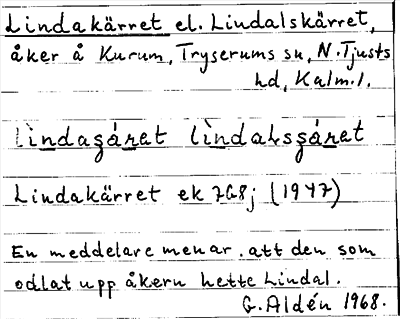 Lindakärret el. Lindalskärret,
åker å Kurum, Tryserums sn, N. Tjusts
hd, Kalm. l.
lìndaʒáret lìndalsʒáret
Lindakärret ek 7G8j (1947)
En meddelare menar, att den som
odlat upp åkern hette Lindal.
G. Aldén 1968.